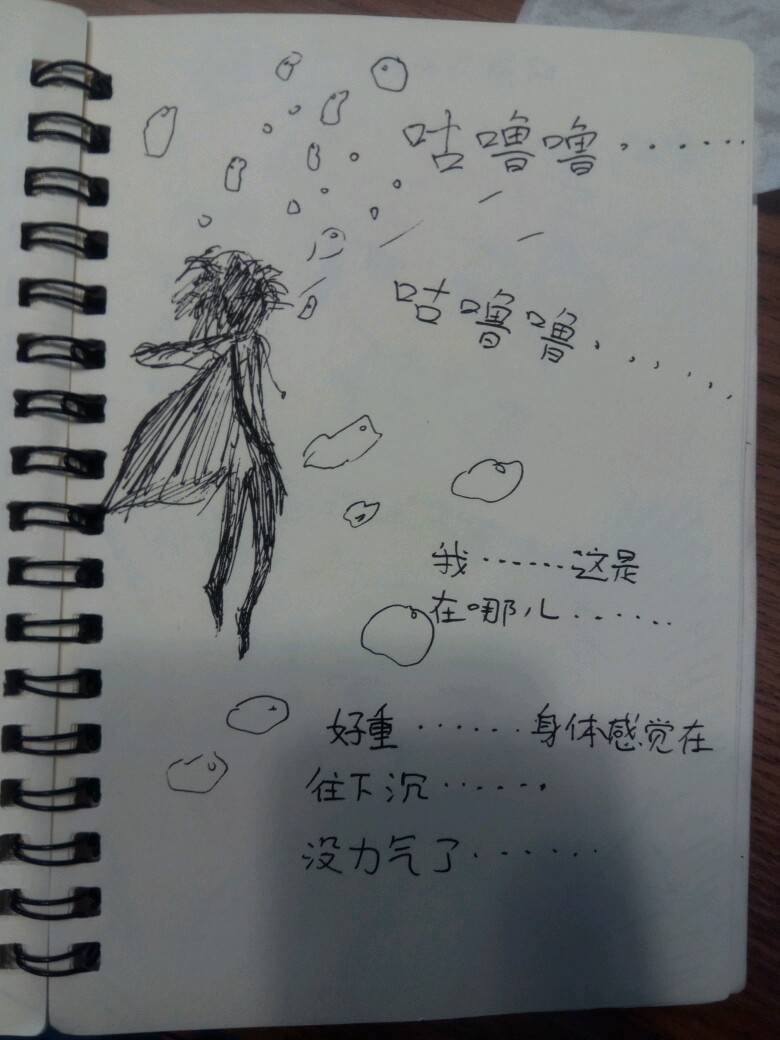 咕噜噜．．．．．．
咕噜噜．．．．．．
我．．．．．．这是
在哪儿．．．．．．
好重．．．．．．身体感觉在
往下沉．．．．．．
没力气了．．．．．．